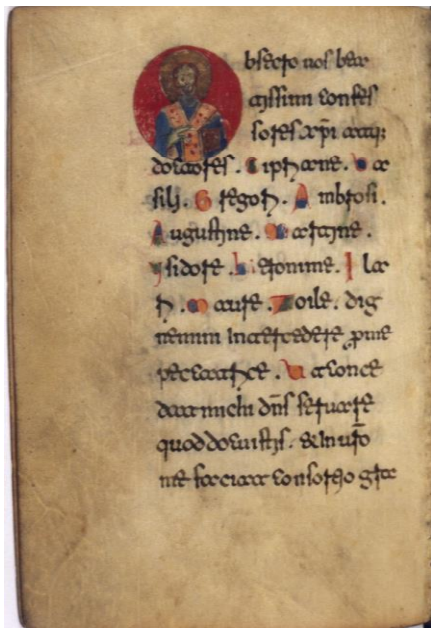 bsecro uos bea
tissimi confes
sores xpi atq;
doctores. Cipriane. Ba
silii. Gregorii. Ambrosi.
Augustine. Martine.
ysidore. hieronime. Ila
rii. Maure. Zoile. dig
nemini intercedere p me
peccatrice. Ut conce
dat michi dns seruare
quod docuistis. & in uro
me faciat consortio gla